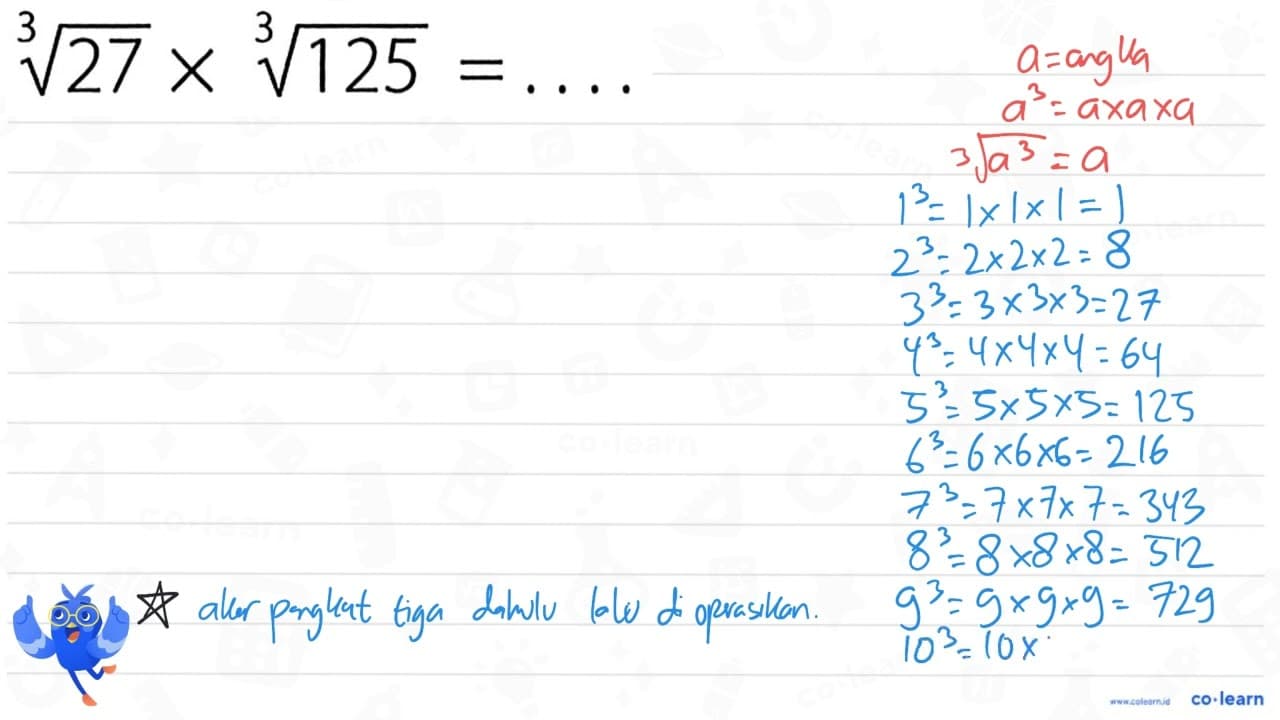 ∛27 × ∛125 = ....
a = angka
a³ = a×a×a
∛a³ = a
1³ = 1×1×1 = 1
2³ = 2×2×2 = 8
3³ = 3×3×3 = 27
4³ = 4×4×4 = 64
5³ = 5×5×5 = 125
6³ = 6×6×6 = 216
7³ = 7×7×7 = 343
8³ = 8×8×8 = 512
9³ = 9×9×9 = 729
10³ = 10×
☆ akar pangkat tiga dahulu lalu di operasikan.
www.colearn.id co·learn